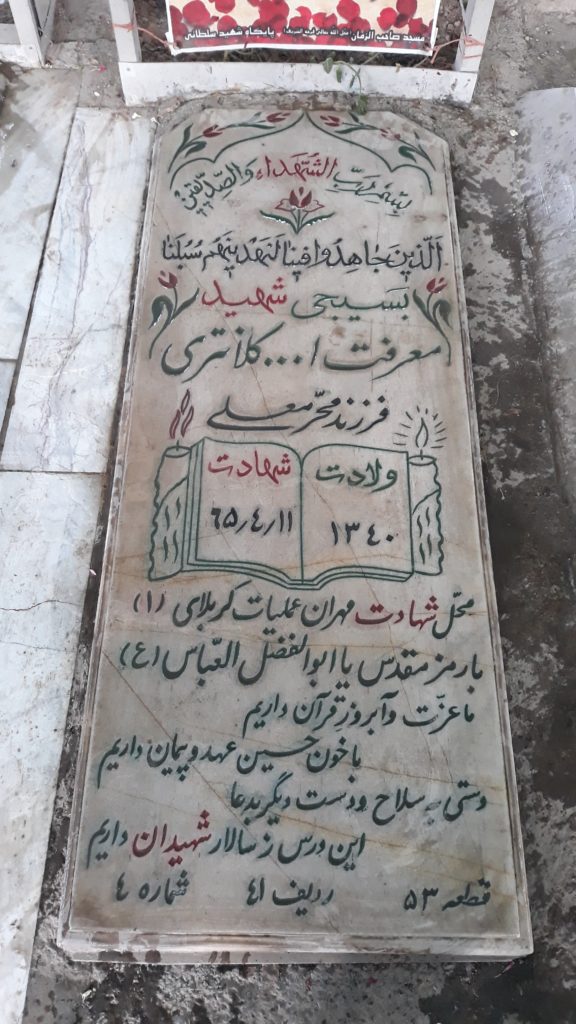 مسجد صاحب الزمان (عجل الله تعالی فرجه الشریف) پایگاه شهید سلطانی
بسم رب الشهداء والصدیقین
الذین جاهدوا فینا لنهدینهم سبلنا
بسیجی شهید
معرفت ا... کلانتری
فرزند محرمعلی
ولادت
۱۳۴۰
شهادت
۶۵٫۴٫۱۱
محل شهادت مهران عملیات کربلای (۱)
با رمز مقدس یا ابوالفضل العباس (ع)
ما عزت و آبرو ز قرآن داریم
با خون حسین عهد و پیمان داریم
دستی به سلاح و دست دیگر بدعا
این درس ز سالار شهیدان داریم
قطعه ۵۳ ردیف ۴۱ شماره ۴